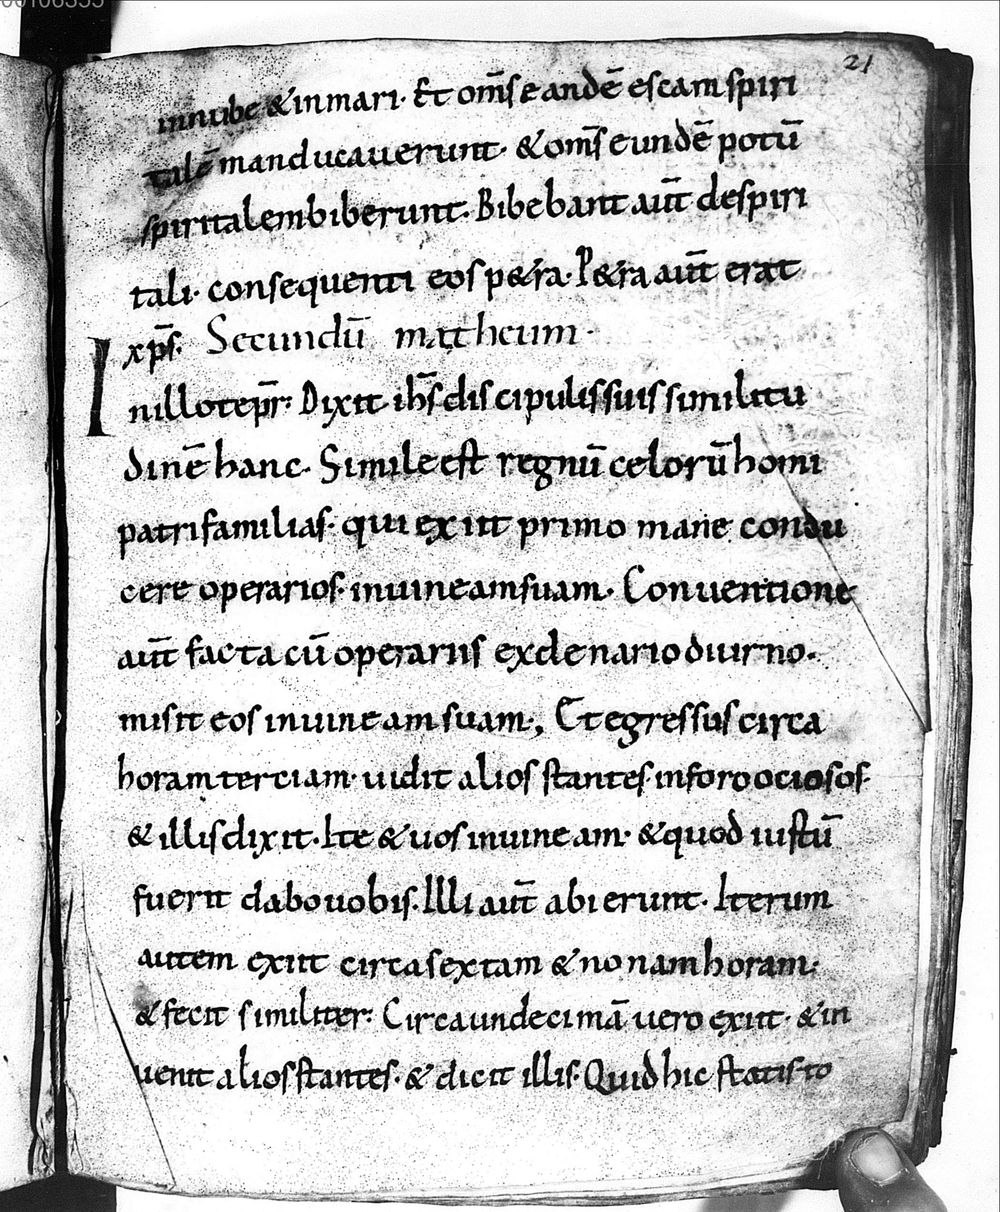 00106355
21
innube &inmari· Et om̅s eandē escam spiri
talē manducauerunt· &om̅s eundē potū
spiritalem biberunt· Bibebant aut̅ despiri
tali· consequenti eos p&ra· P&ra aut̅ erat
xp̅s· Secundū matheum·
Inillotep̅r· Dixit ih̅s discipulis suis similitu
dinē hanc· Simile est regnū celorū homi
patrifamilias· qui exiit primo mane condu
cere operarios· inuineamsuam· Conuentione
aut̅ facta cū operariis exdenario diurno·
misit eos inuineam suam·, Et egressus circa
horam terciam· uidit alios stantes· inforo ociosos·
& illis dixit· Ite & uos inuineam· &quod iustū
fuerit dabo uobis· Illi aut̅ abierunt· Iterum
autem exiit circa sextam & nonam horam·
& fecit similiter· Circa undecimā uero exiit· &in
uenit alios stantes· & dicit illis· Quid hic statis to